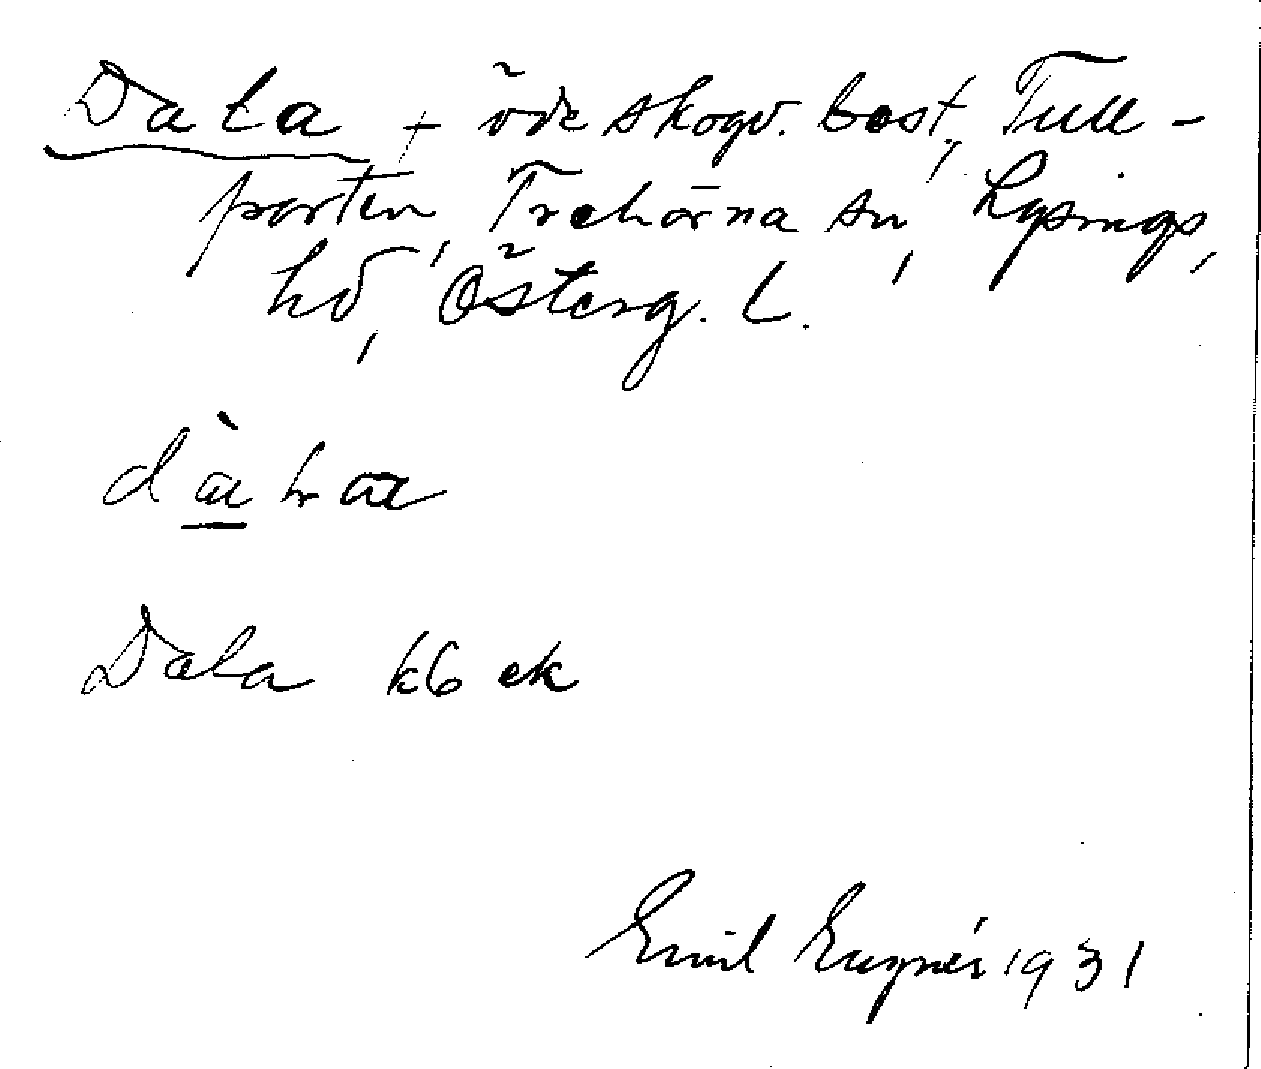 Data + öde skogv. bost, Tull-
porten, Trehörna sn, Lysings,
hd, Österg. L.
Data kb ek
Emil Eugnér 1931